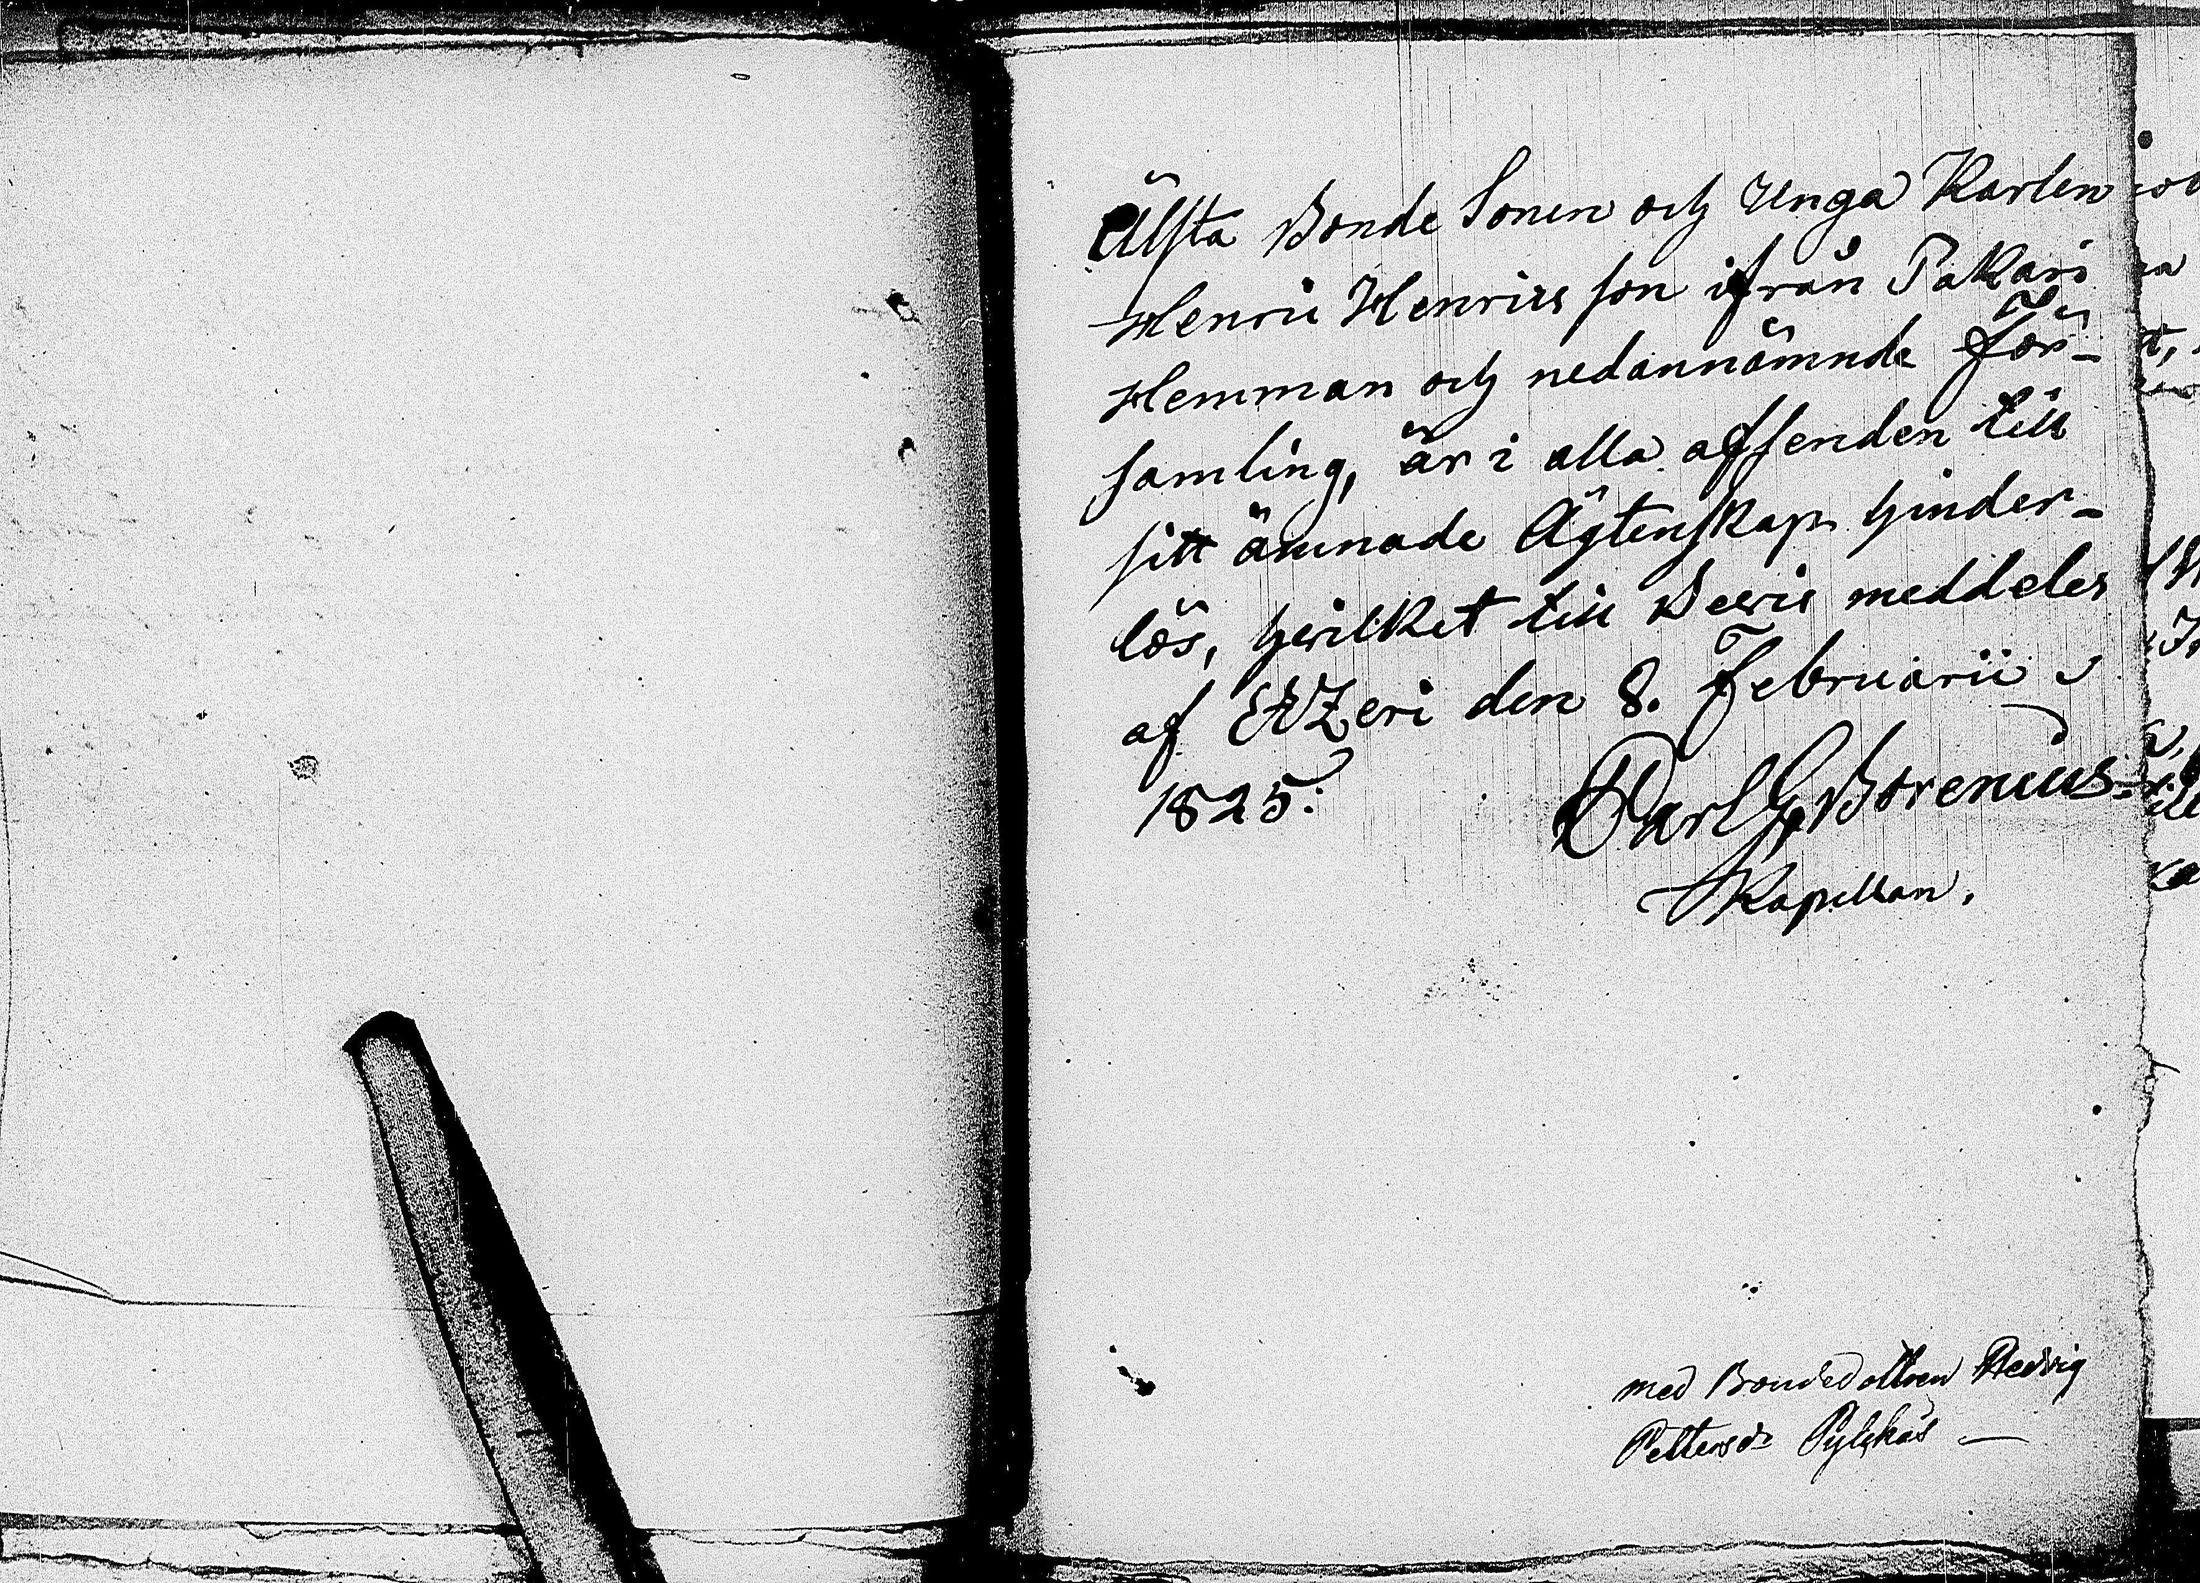 Älsta Bonde Sonen och Unga Karlen
Henric Henricsson ifrån Pakari
Hemman och nedannämnde För-
samling, är i alla afseenden till
sitt ämnade Ägtenskap hinder-
lös, hvilket till Bevis meddeles
af Etzeri den 8. Februarii
1825.
Carl G. Borenius.
Kapellan.
med Bondedottren Hedvig
Pettersdr Pylkäs —